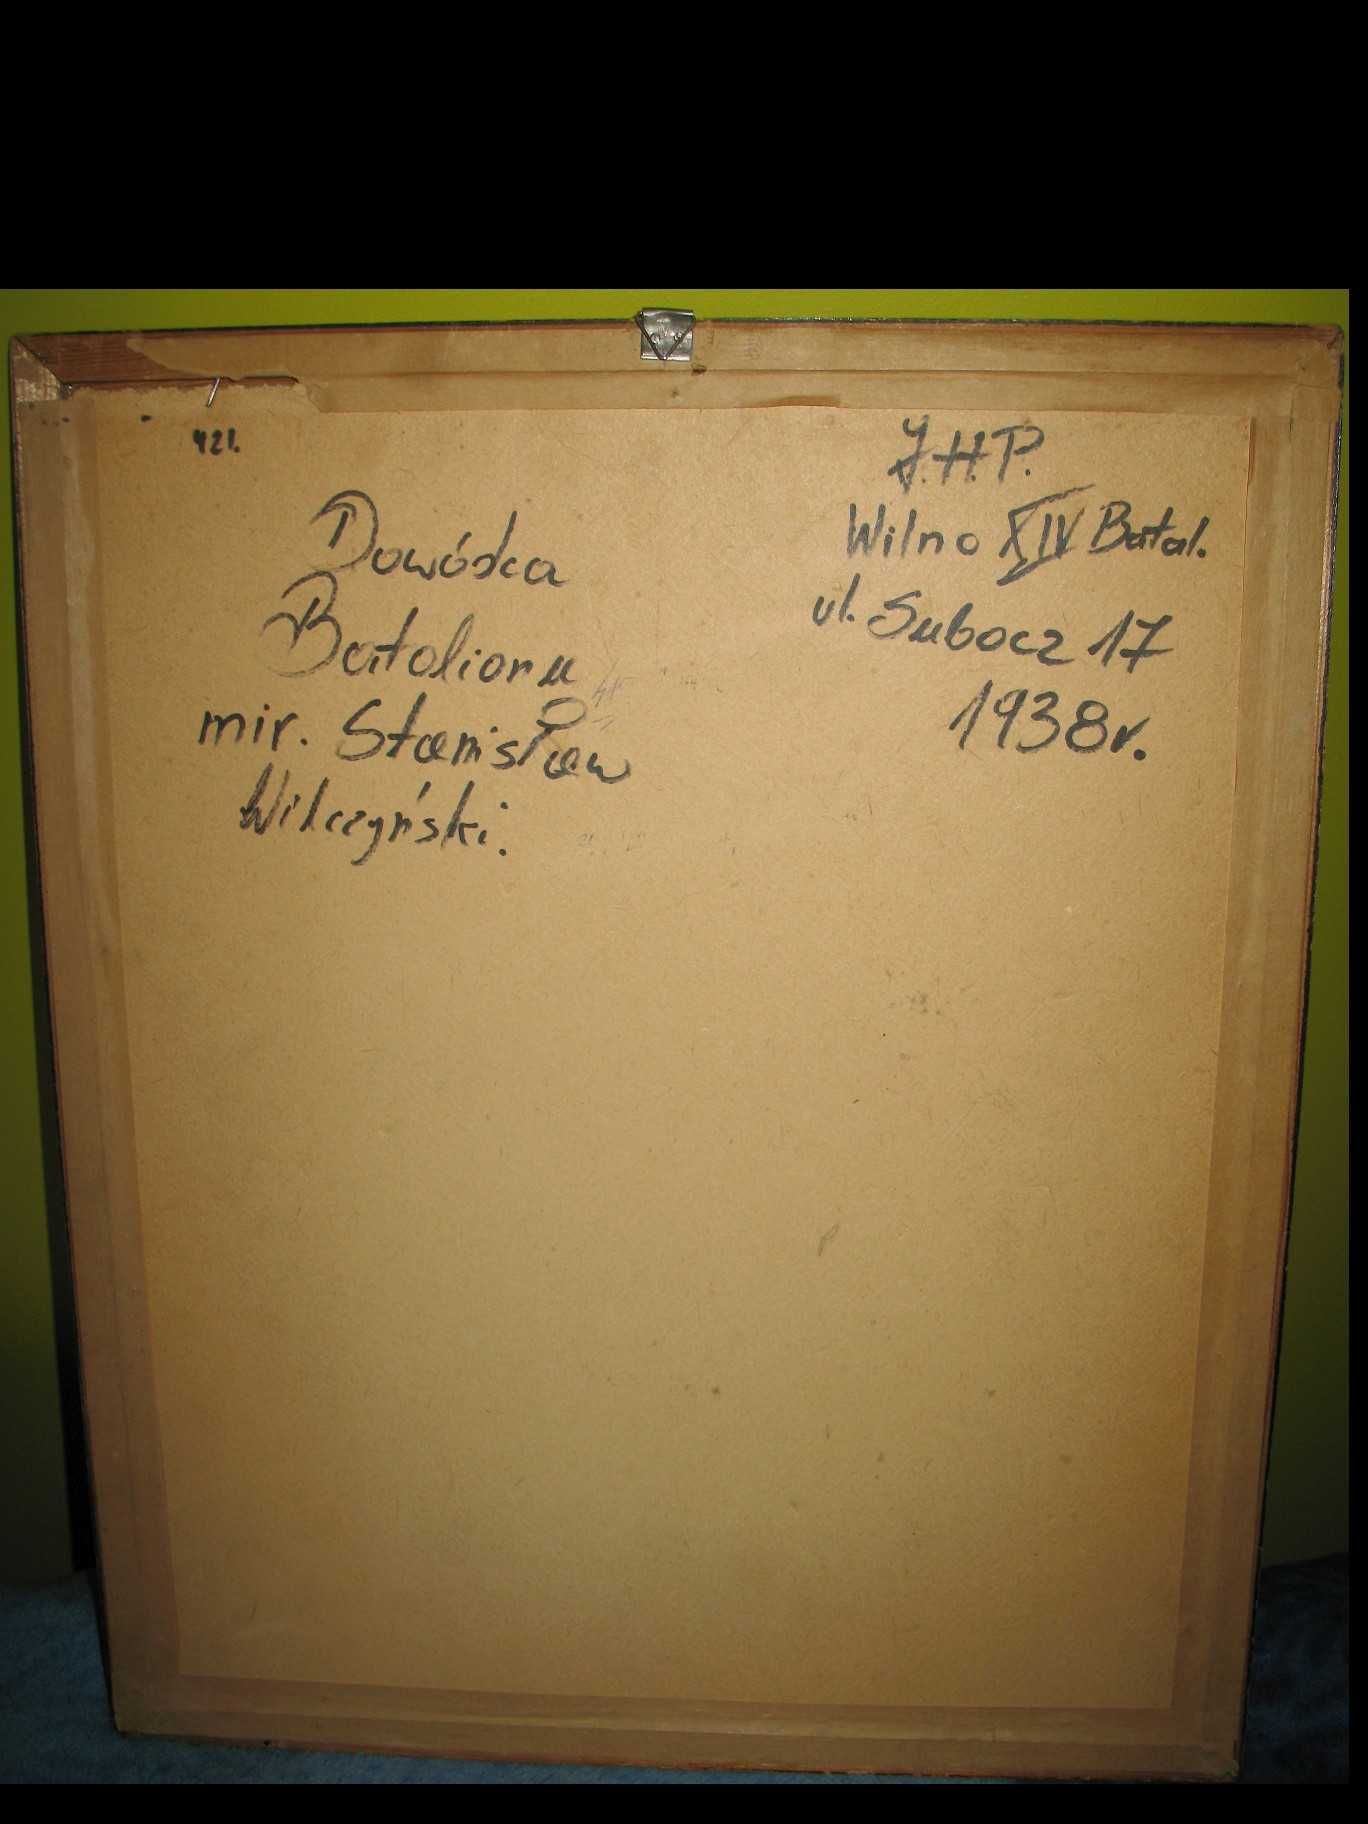 421.
Dowódca
Batalionu
mjr. Stanisław
Wilczyński.
J.H.P.
Wilno XIV Batal.
ul. Subocz 17
1938r.